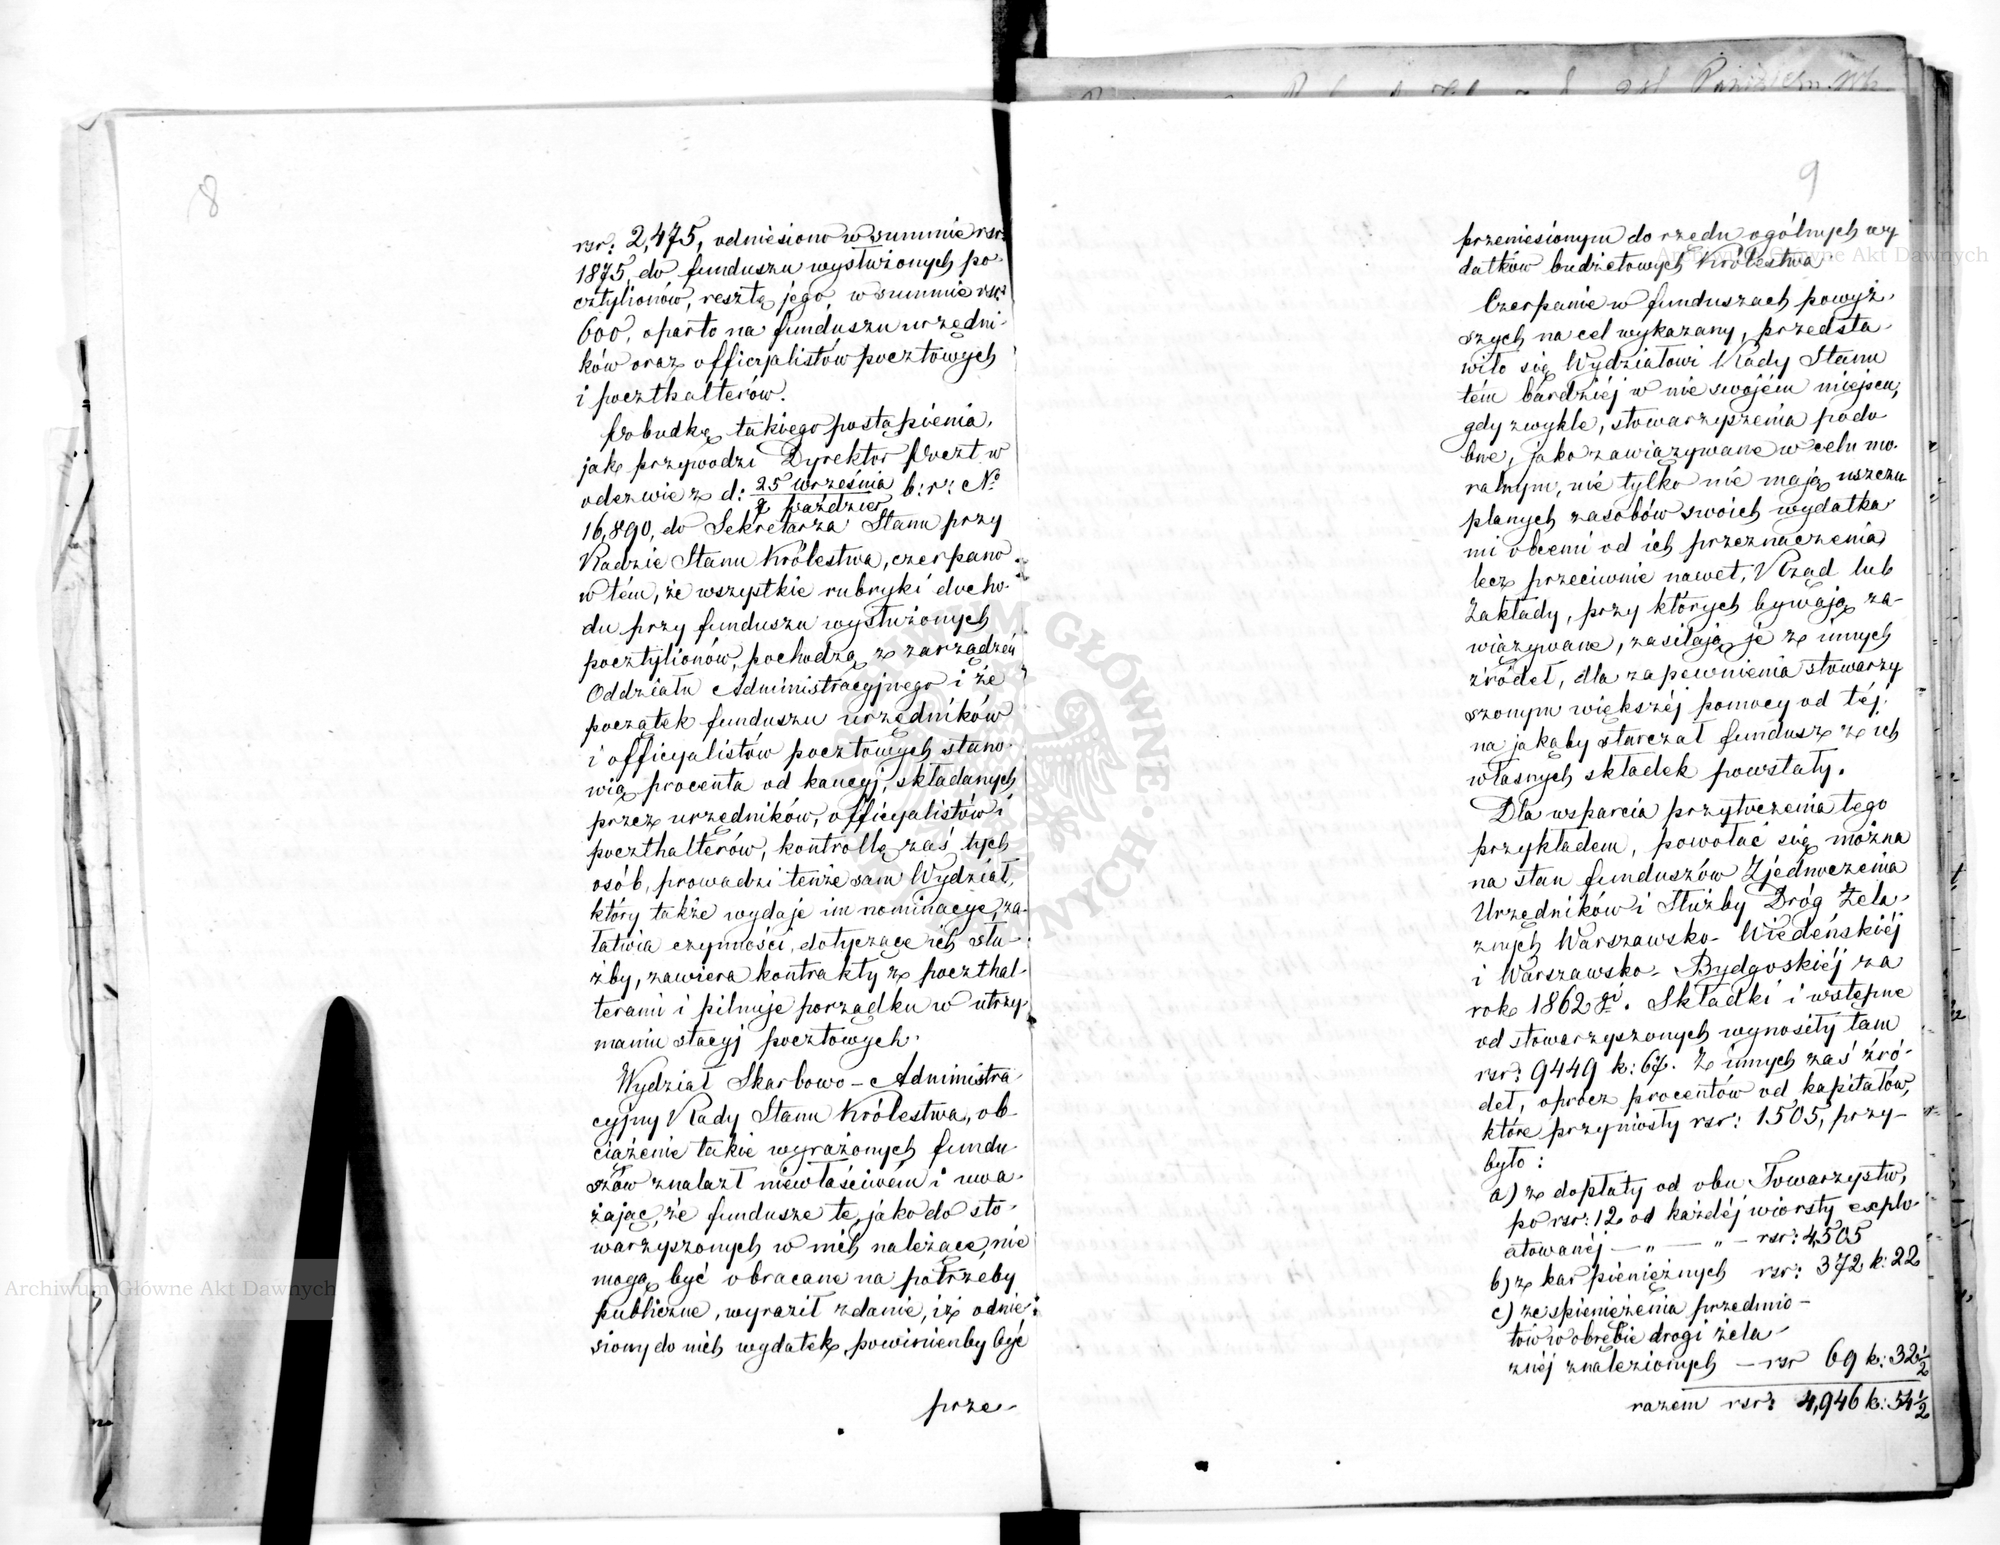 8
rsr: 2,475, odniesiono w summie rsr:
1875, do funduszu wysłużonych po-
cztylionów, resztę jego, w summie rsr:
600, oparto na funduszu urzędni-
ków oraz officjalistów pocztowych
i poczthalterów.
Pobudkę takiego postąpienia,
jak przywodzi Dyrektor Poczt w
odezwie z d: 25 września / 7 paździer b: r: No
16,890, do Sekretarza Stanu przy
Radzie Stanu Królestwa, czerpano
w tém, że wszystkie rubryki docho-
du przy funduszu wysłużonych
pocztylionów, pochodzą z zarządzeń
Oddziału Administracyjnego i że
początek funduszu urzędników
i officyalistów pocztowych stano-
wią procenta od kaucyj, składanych
przez urzędników, officyalistów i
poczthalterów, kontrollę zaś tych
osób, prowadzi tenże sam Wydział,
który także wydaje im nominacye, za-
łatwia czynności, dotyczące ich słu-
żby, zawiera kontrakty z poczthal-
terami i pilnuje porządku w utrzy-
maniu stacyj pocztowych.
Wydział Skarbowo-Administra-
cyjny Rady Stanu Królestwa, ob-
ciążenie takie wyrażonych fundu-
szów znalazł niewłaściwém i uwa-
żając, że fundusze te, jako do sto-
warzyszonych w nich należące, nie
mogą być obracane na potrzeby
publiczne, wyraził zdanie, iż odnie-
siony do nich wydatek, powinienby być
prze-
9
przeniesionym do rzędu ogólnych wy
datków budżetowych Królestwa
Czerpanie w funduszach powyż-
szych na cel wykazany, przedsta-
wiło się Wydziałowi Rady Stanu
tém bardziéj w nie swojém miejscu,
gdy zwykle, stowarzyszenia podo
bne, jako zawiązywane w celu mo-
ralnym, nie tylko nie mają uszczu
planych zasobów swoich wydatka-
mi obcemi od ich przeznaczenia,
lecz przeciwnie nawet, Rząd lub
Zakłady, przy których bywają za-
wiązywane, zasilają je z innych
źródeł, dla zapewnienia stowarzy
szonym większéj pomocy od téj,
na jakąby starczał fundusz z ich
własnych składek powstały.
Dla wsparcia przytoczenia tego
przykładem, powołać się można
na stan funduszów Zjednoczenia
Urzędników i Służby Dróg Żela-
znych Warszawsko-Wiedeńskiéj
i Warszawsko-Bydgoskiéj za
rok 1862gi. Składki i wstępne
od stowarzyszonych wynosiły tam
rsr: 9449 k: 67. Z innych zaś źró-
deł, oprócz procentów od kapitałów,
które przyniosły rsr: 1505, przy-
było:
a) z dopłaty od obu Towarzystw,
po rsr: 12 od każdéj wiorsty explo-
atowanéj — „ — „ — rsr: 4,505
b) z kar pieniężnych rsr: 372 k: 22
c) ze spieniężenia przedmio-
tów w obrębie drogi żela-
znéj znalezionych — rsr 69 k: 32 1/2
razem rsr: 4,946 k: 54 1/2
Archiwum Główne Akt Dawnych
Archiwum Główne Akt Dawnych
ARCHIWUM GŁÓWNE AKT DAWNYCH